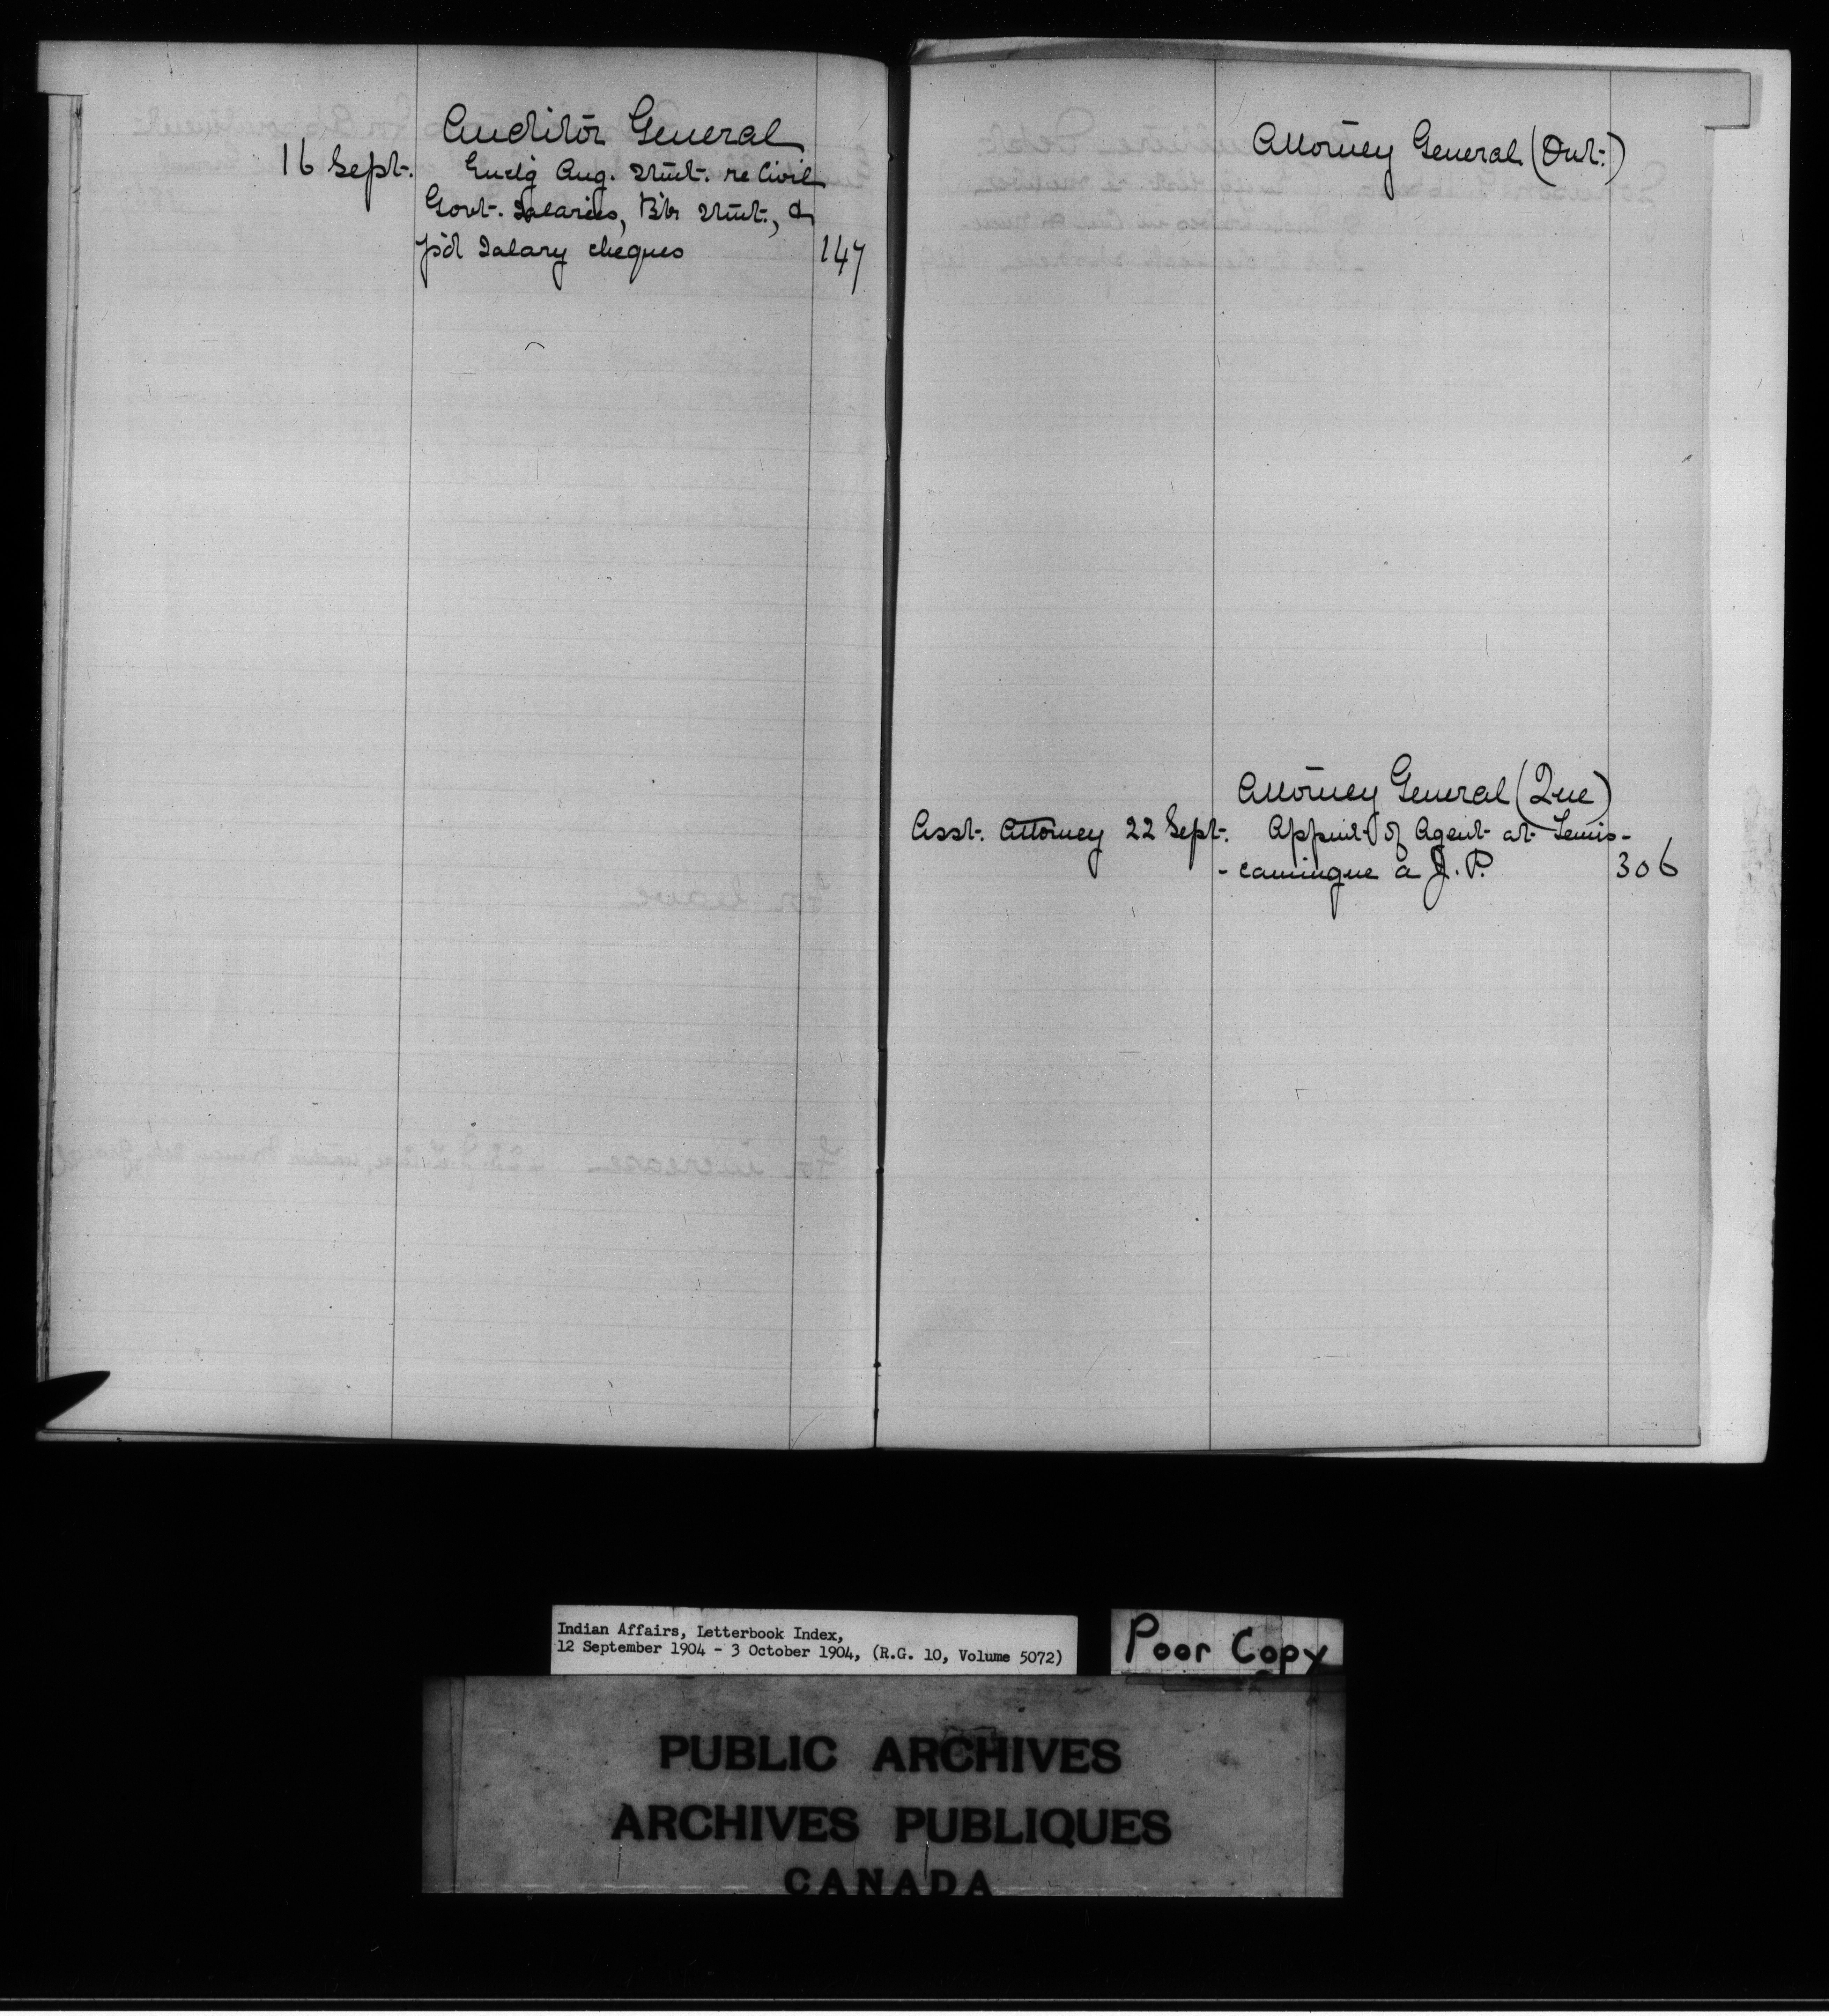 Auditor General
16 Sept. Encl'g Aug. Stmt. re Civil
Govt. Salaries, B'k Stmt., &
p'd Salary cheques 147
Attorney General (Ont.)
Attorney General (Que)
Asst. Attorney 22 Sept. Appint of Agent at Temis-
-camingue a J.P. 306
For leave
For increase
Indian Affairs, Letterbook Index,
12 September 1904 - 3 October 1904, (R.G. 10, Volume 5072)
Poor Copy
PUBLIC ARCHIVES
ARCHIVES PUBLIQUES
CANADA